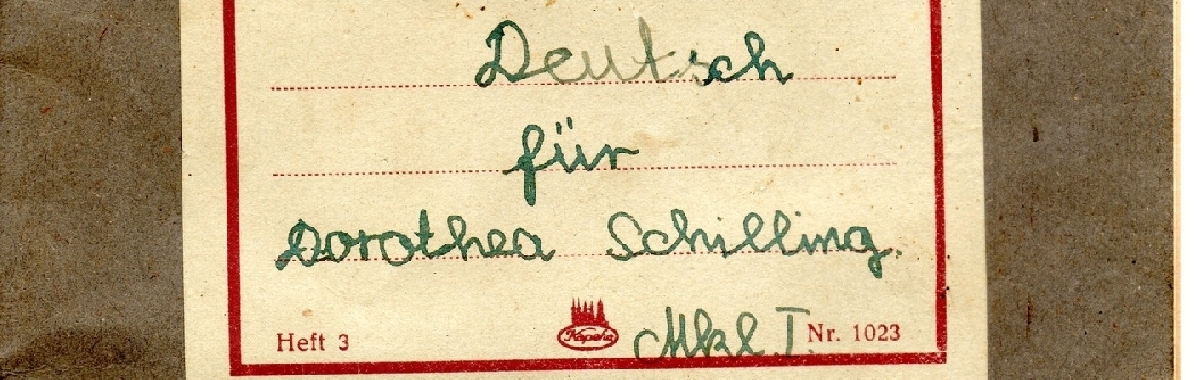 Deutsch
für
Dorothea Schilling.
Heft 3 Mkl. I. Nr. 1023